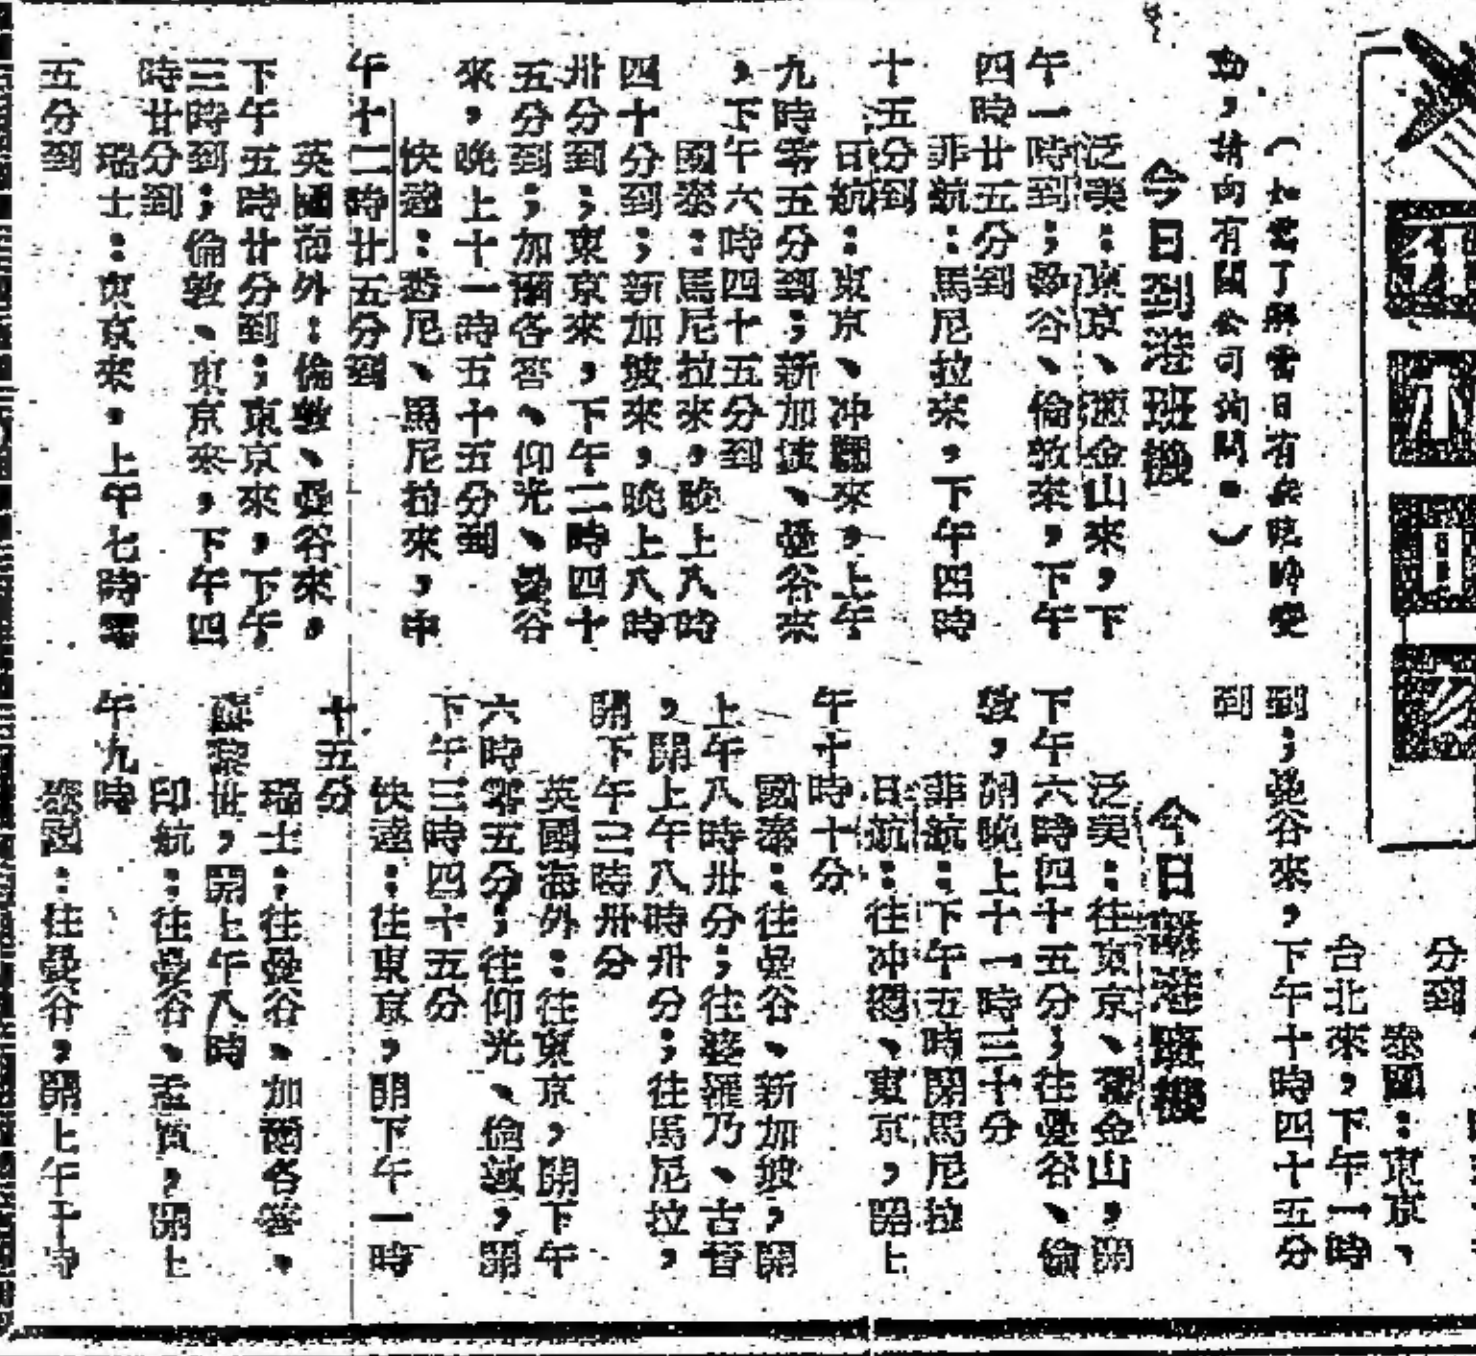 （如需了解當日有無臨時變
動，請向有關公司詢問。）
今日到港班機
泛美：東京、舊金山來，下
午一時到；曼谷、倫敦來，下午
四時廿五分到
菲航：馬尼拉來，下午四時
十五分到
日航：東京、冲繩來，上午
九時零五分到；新加坡、曼谷來
，下午六時四十五分到
國泰：馬尼拉來，晚上八時
四十分到；新加坡來，晚上八時
卅分到；東京來，下午二時四十
五分到；加爾各答、仰光、曼谷
來，晚上十一時五十五分到
快達：悉尼、馬尼拉來，中
午十二時廿五分到
英國海外：倫敦、曼谷來，
下午五時廿分到；東京來，下午
三時到；倫敦、東京來，下午四
時廿分到
瑞士：東京來，上午七時零
五分到
分到
泰國：東京、
台北來，下午一時
到；曼谷來，下午十時四十五分
到
今日離港班機
泛美：往東京、舊金山，開
下午六時四十五分；往曼谷、倫
敦，開晚上十一時三十分
菲航：下午五時開馬尼拉
日航：往冲繩、東京，開上
午十時十分
國泰：往曼谷、新加坡，開
上午八時卅分；往婆羅乃、古晉
，開上午八時卅分；往馬尼拉，
開下午三時卅分
英國海外：往東京，開下午
六時零五分；往仰光、倫敦，開
下午三時四十五分
快達：往東京，開下午一時
十五分
瑞士：往曼谷、加爾各答、
蘇黎世，開上午八時
印航：往曼谷、孟買，開上
午九時
泰國：往曼谷，開上午十時